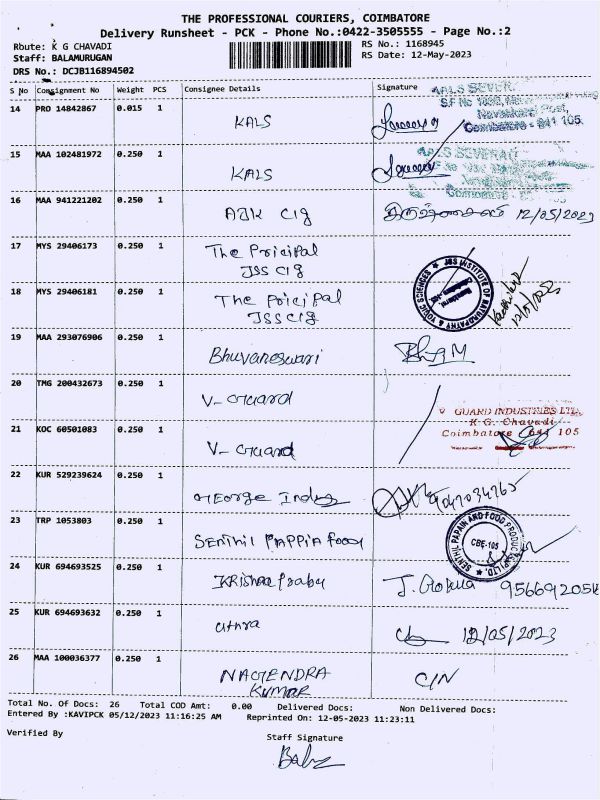 THE PROFESSIONAL COURIERS, COIMBATORE
Delivery Runsheet - PCK - Phone No.:0422-3505555 - Page No.:2
Route: K G CHAVADI RS No.: 1168945
Staff: BALAMURUGAN RS Date: 12-May-2023
DRS No.: DCJB116894502
S No Consignment No Weight PCS Consignee Details Signature
14 PRO 14842867 0.015 1 KALS
15 MAA 102481972 0.250 1 KALS
16 MAA 941221202 0.250 1 AJK Clg 12/05/2023
17 MYS 29406173 0.250 1 The Pricipal
JSS Clg
18 MYS 29406181 0.250 1 The Pricipal
JSS Clg
JSS INSTITUTE OF NATUROPATHY & YOGIC SCIENCES
19 MAA 293076906 0.250 1 Bhuvaneswari
20 TMG 200432673 0.250 1 V-Guard
V GUARD INDUSTRIES LTD.
K.G. Chavadi
Coimbatore 641 105
21 KOC 60501083 0.250 1 V-Guard
22 KUR 529239624 0.250 1 George Indus
23 TRP 1053803 0.250 1 SENTHIL PAPPIA Food
SENTHIL PAPAIN AND FOOD PRODUCTS (P) LTD.
CBE-105
24 KUR 694693525 0.250 1 Krishna Prabu
25 KUR 694693632 0.250 1 Uthra 12/05/2023
26 MAA 100036377 0.250 1 NAGENDRA
KUMAR C/N
Total No. Of Docs: 26 Total COD Amt: 0.00 Delivered Docs: Non Delivered Docs:
Entered By :KAVIPCK 05/12/2023 11:16:25 AM Reprinted On: 12-05-2023 11:23:11
Verified By Staff Signature